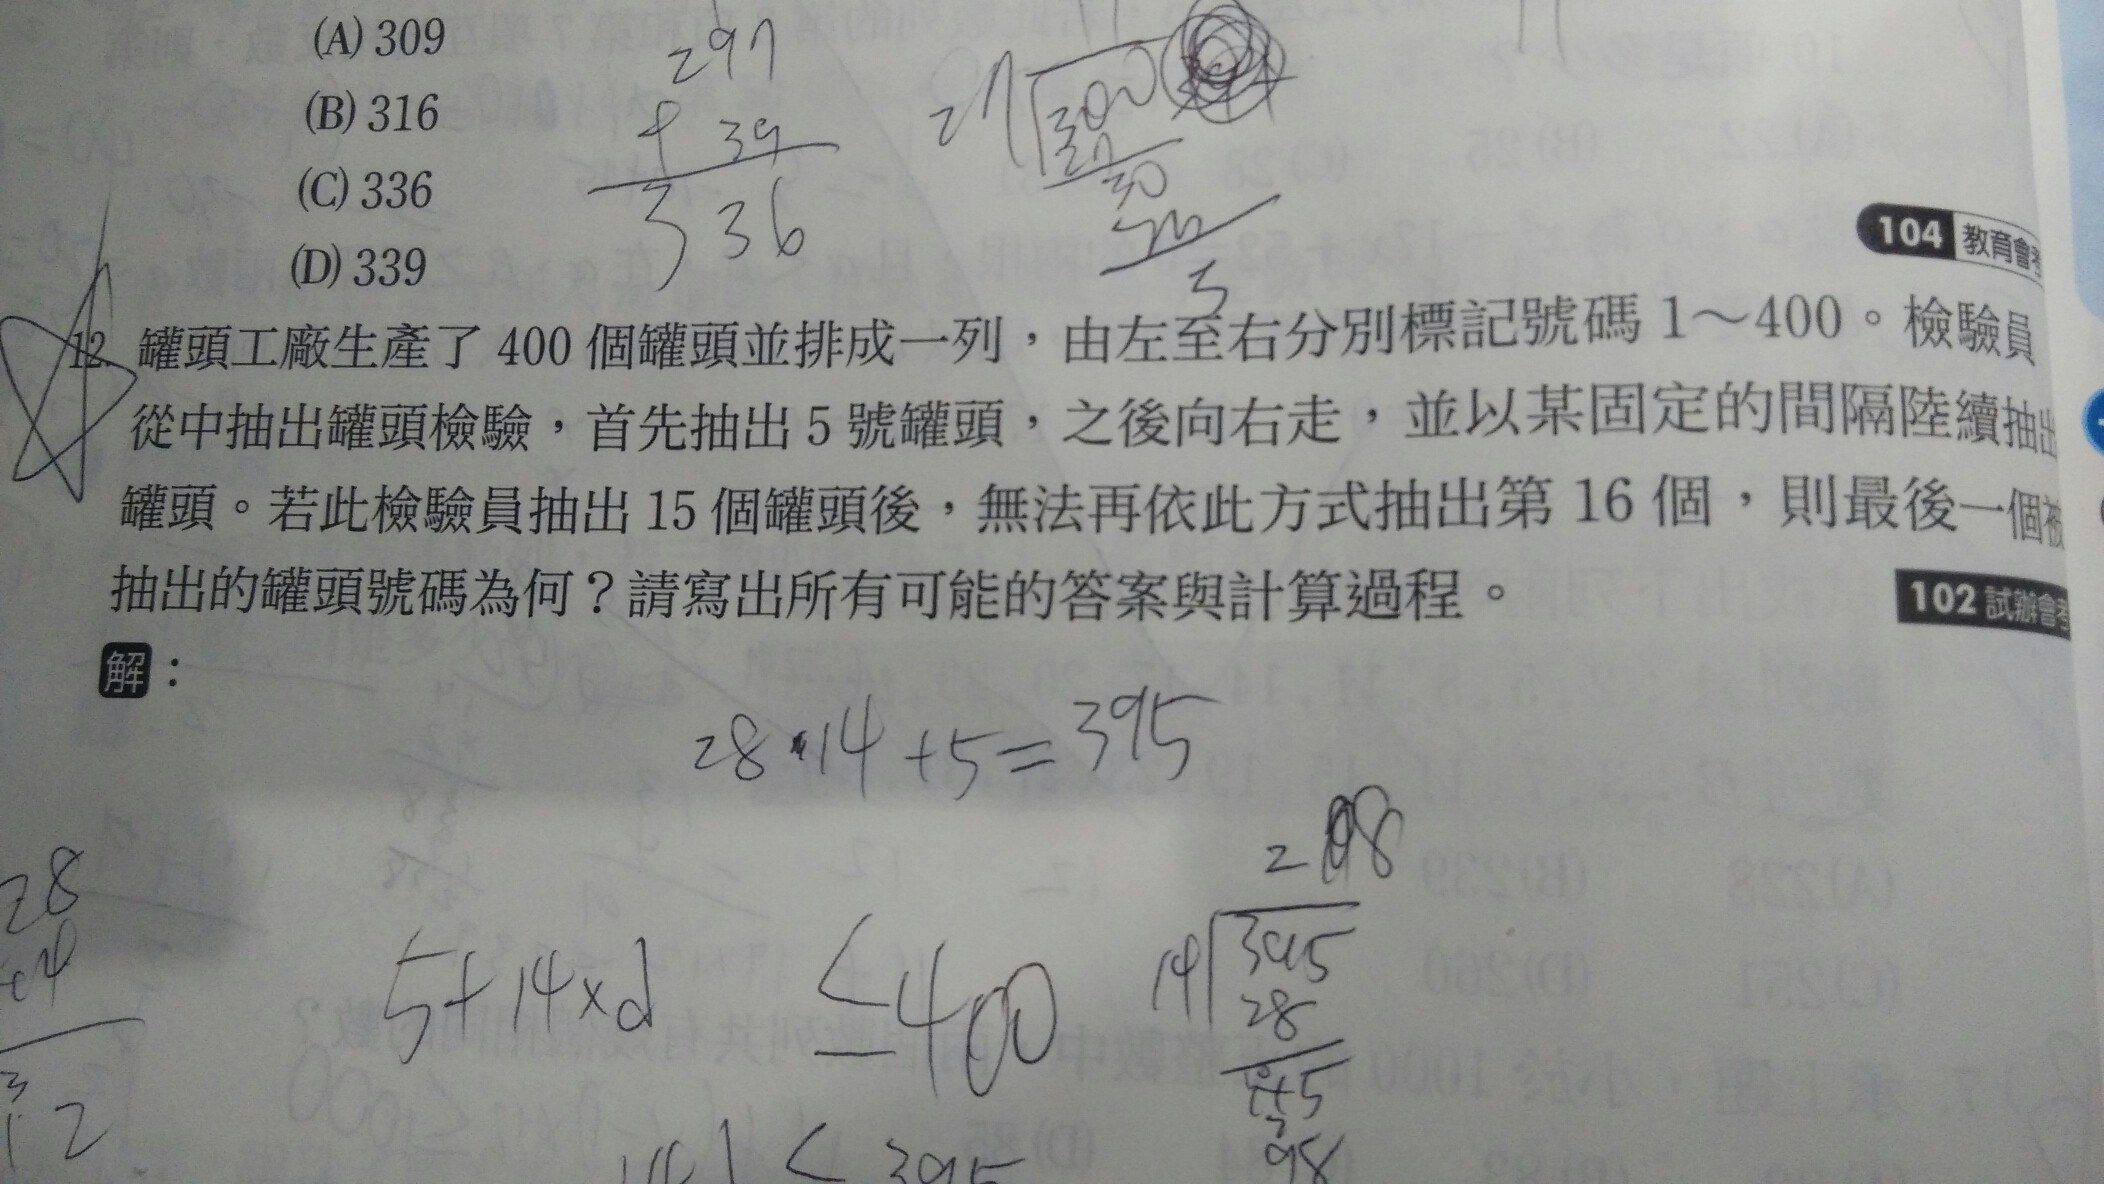 (A) 309
(B) 316
(C) 336
(D) 339
297
+ 39
336
27
300
27
30
3
104 教育會考
12. 罐頭工廠生產了 400 個罐頭並排成一列，由左至右分別標記號碼 1～400。檢驗員
從中抽出罐頭檢驗，首先抽出 5 號罐頭，之後向右走，並以某固定的間隔陸續抽出
罐頭。若此檢驗員抽出 15 個罐頭後，無法再依此方式抽出第 16 個，則最後一個被
抽出的罐頭號碼為何？請寫出所有可能的答案與計算過程。
102 試辦會考
解：
28·14+5=395
28
5+14×d ≤400
14
395
28
98
28